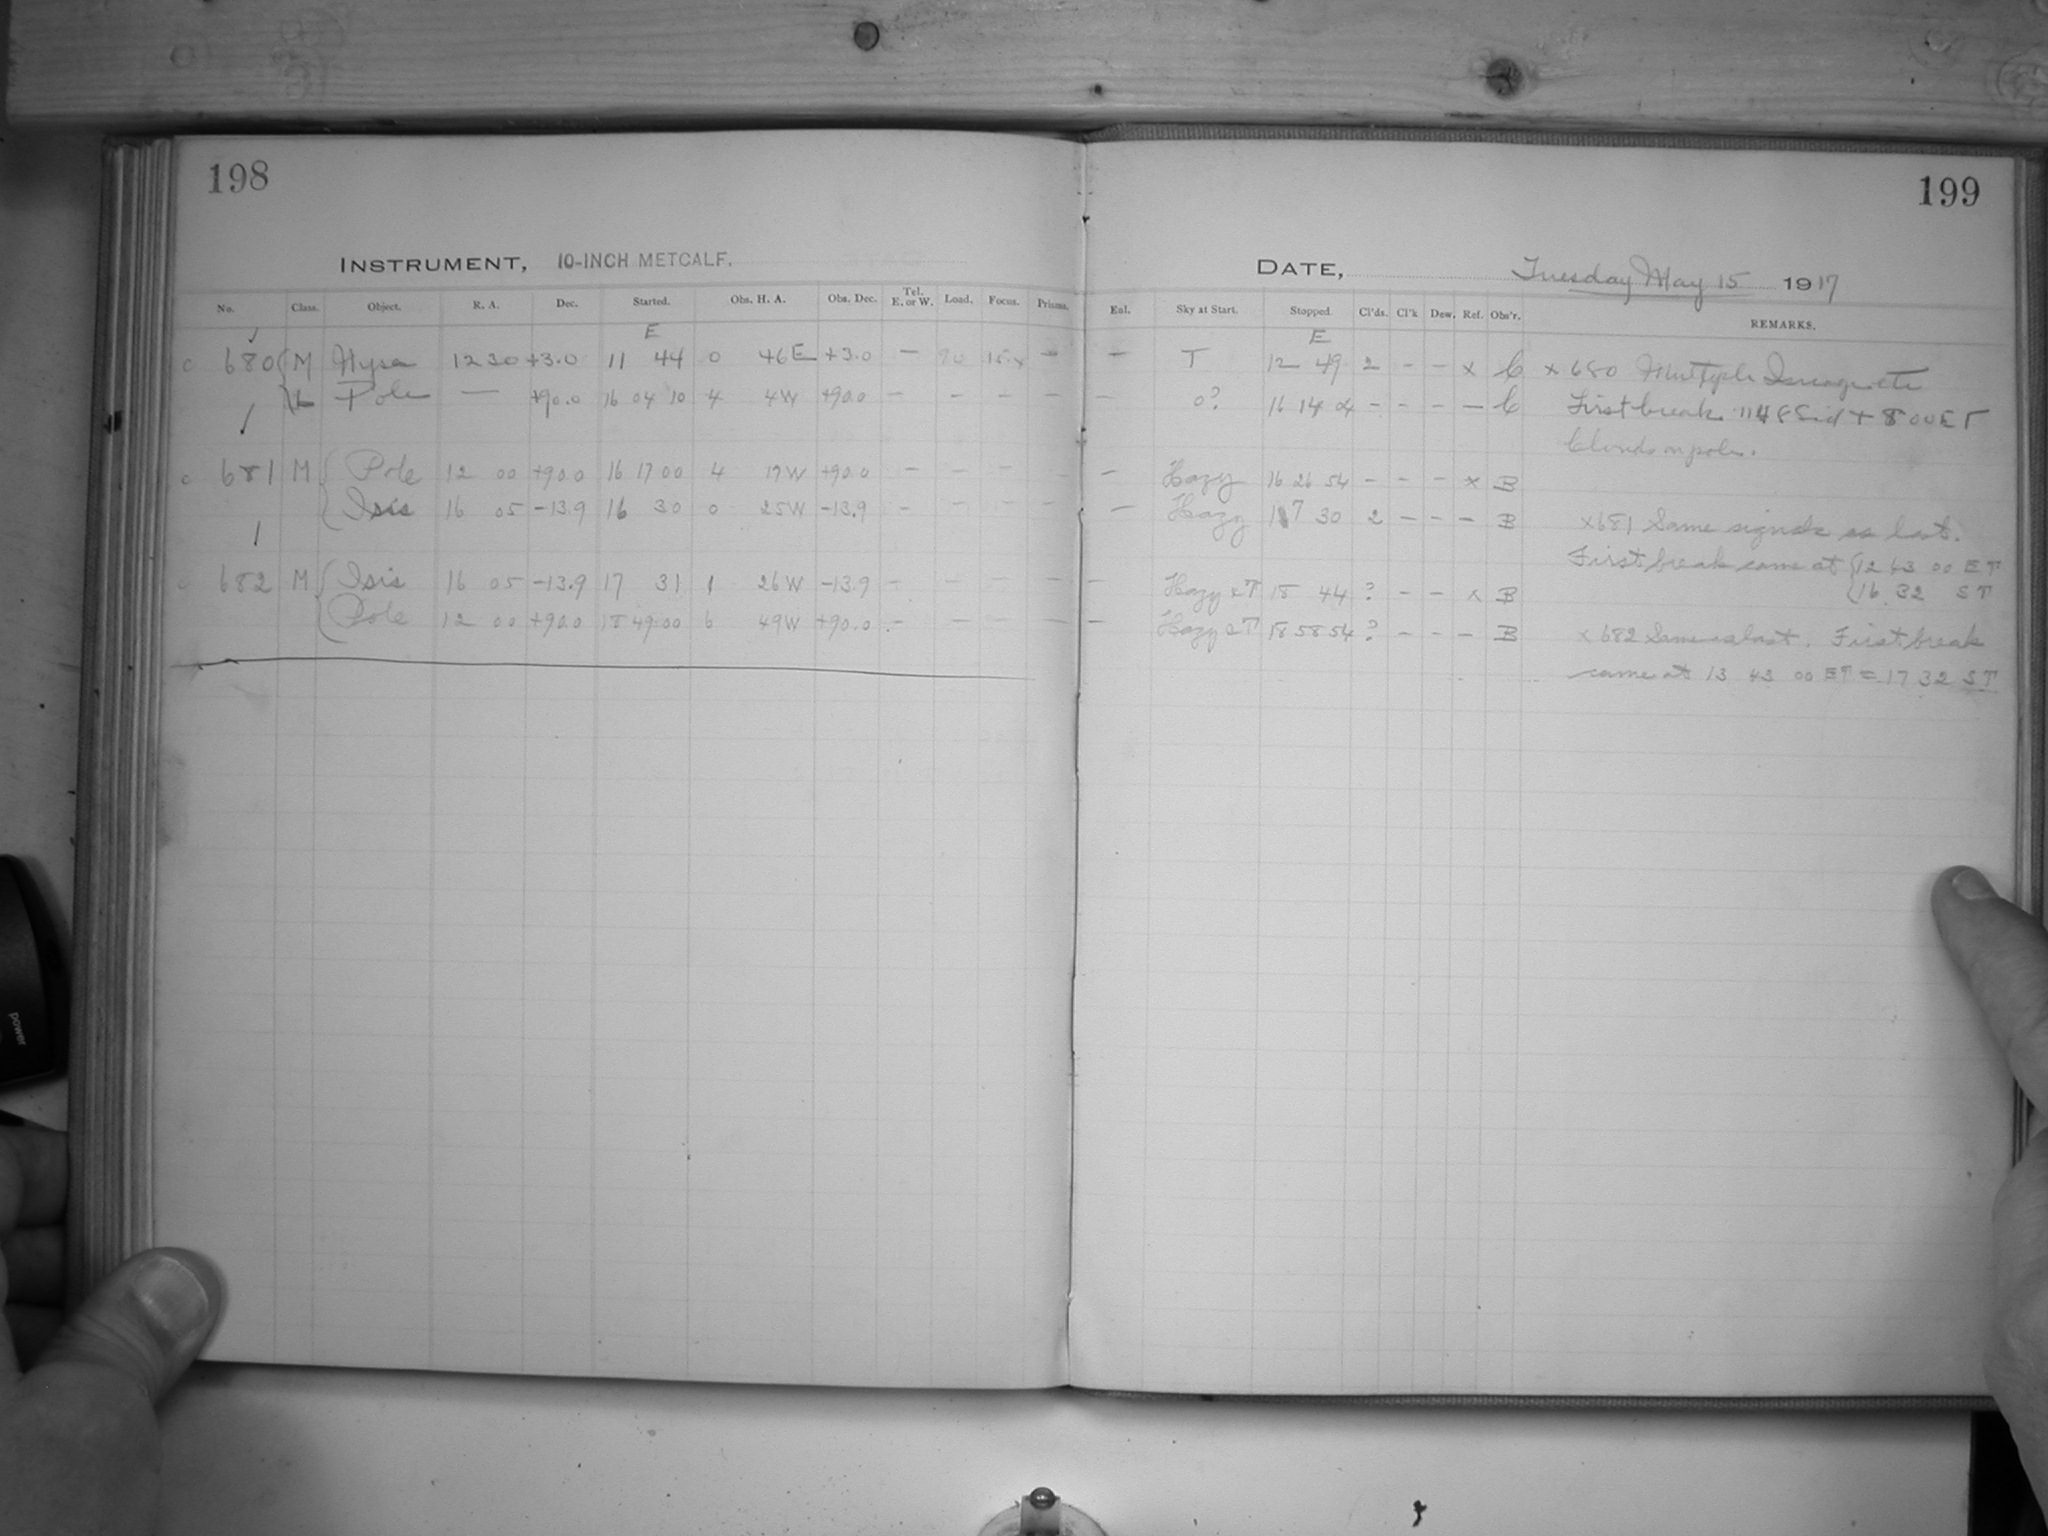 198
INSTRUMENT, 10-INCH METCALF.
No. Class. Object. R. A. Dec. Started. Obs. H. A. Obs. Dec. Tel. E. or W. Load. Focus. Prisms.
E
c 680 M Nysa 12 30 +3.0 11 44 0 46E +3.0 — 90 —
L Pole — +90.0 16 04 10 4 4W +90.0 — — — —
c 681 M Pole 12 00 +90.0 16 17 00 4 17W +90.0 — — — —
Isis 16 05 -13.9 16 30 0 25W -13.9 — — — —
c 682 M Isis 16 05 -13.9 17 31 1 26W -13.9 — — — —
Pole 12 00 +90.0 18 49 00 6 49W +90.0 — — — —
199
DATE, Tuesday May 15 1917
Eal. Sky at Start. Stopped. Cl'ds. Cl'k Dew. Ref. Obs'r. REMARKS.
E
— T 12 49 2 - - x C x 680 Multiple
— 0? 16 14 04 - - - — C First break 1148 Sid + 8 00 E T
Clouds on pole.
— Hazy 16 26 54 - - - x B
— Hazy 17 30 2 - - - B x681 Same signals as last.
First break came at {12 43 00 E T
{16 32 S T
— Hazy & T 18 44 ? - - x B
— Hazy & T 18 58 54 ? - - - B x 682 Same as last. First break
came at 13 43 00 E T = 17 32 S T
power